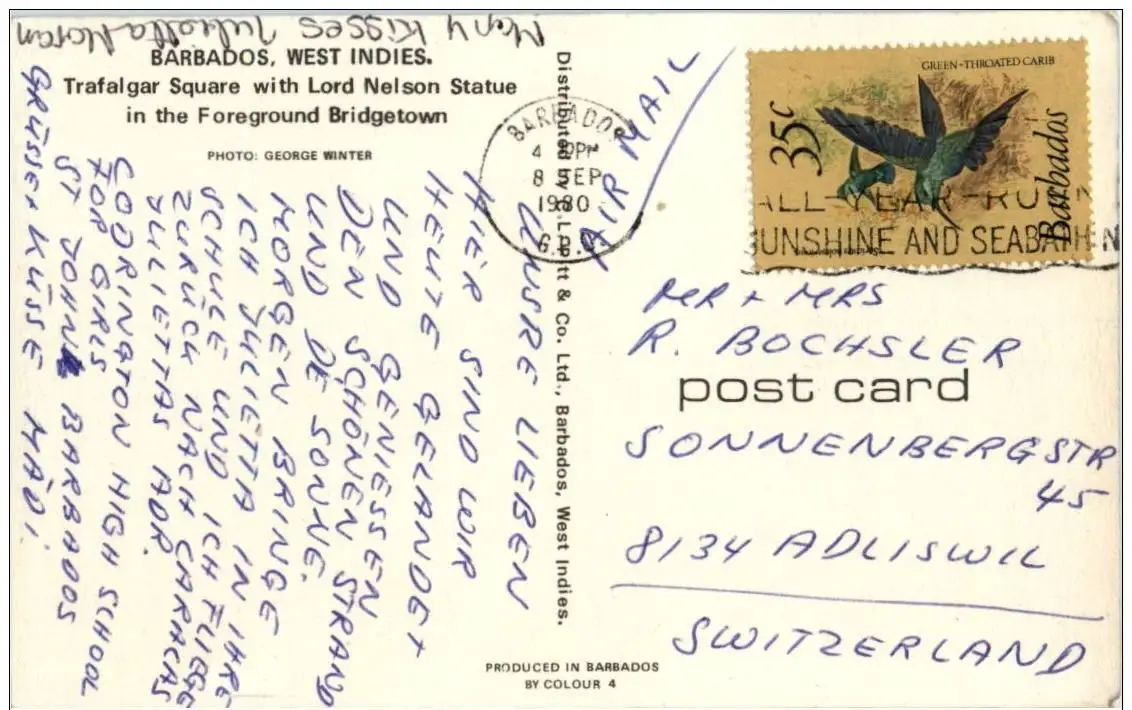 BARBADOS, WEST INDIES.
Trafalgar Square with Lord Nelson Statue
in the Foreground Bridgetown
PHOTO: GEORGE WINTER
UNSRE LIEBEN
HIER SIND WIR
HEUTE GELANDET
UND GENIESSEN
DEN SCHÖNEN STRAND
UND DE SONNE.
MORGEN BRINGE
ICH JULIETTA IN IHRE
SCHULE UND ICH FLIEGE
ZURÜCK NACH CARACAS
JULIETTAS ADR.
CODRINGTON HIGH SCHOOL
FOR GIRLS
ST JOHN BARBADOS
GRÜSSE + KÜSSE MÄDI.
Many Kisses Julietta Moran
Distributed by S.L. Pitt & Co. Ltd., Barbados, West Indies.
PRODUCED IN BARBADOS
BY COLOUR 4
AIR MAIL
BARBADOS
8 SEP
1980
G.P.O.
GREEN-THROATED CARIB
35c
Barbados
ALL-YEAR-ROUN
SUNSHINE AND SEABATHIN
post card
MR + MRS
R. BOCHSLER
SONNENBERGSTR
45
8134 ADLISWIL
SWITZERLAND